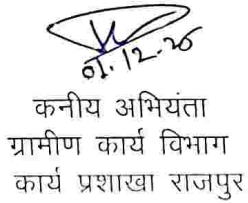 01.12.25
कनीय अभियंता
ग्रामीण कार्य विभाग
कार्य प्रशाखा राजपुर